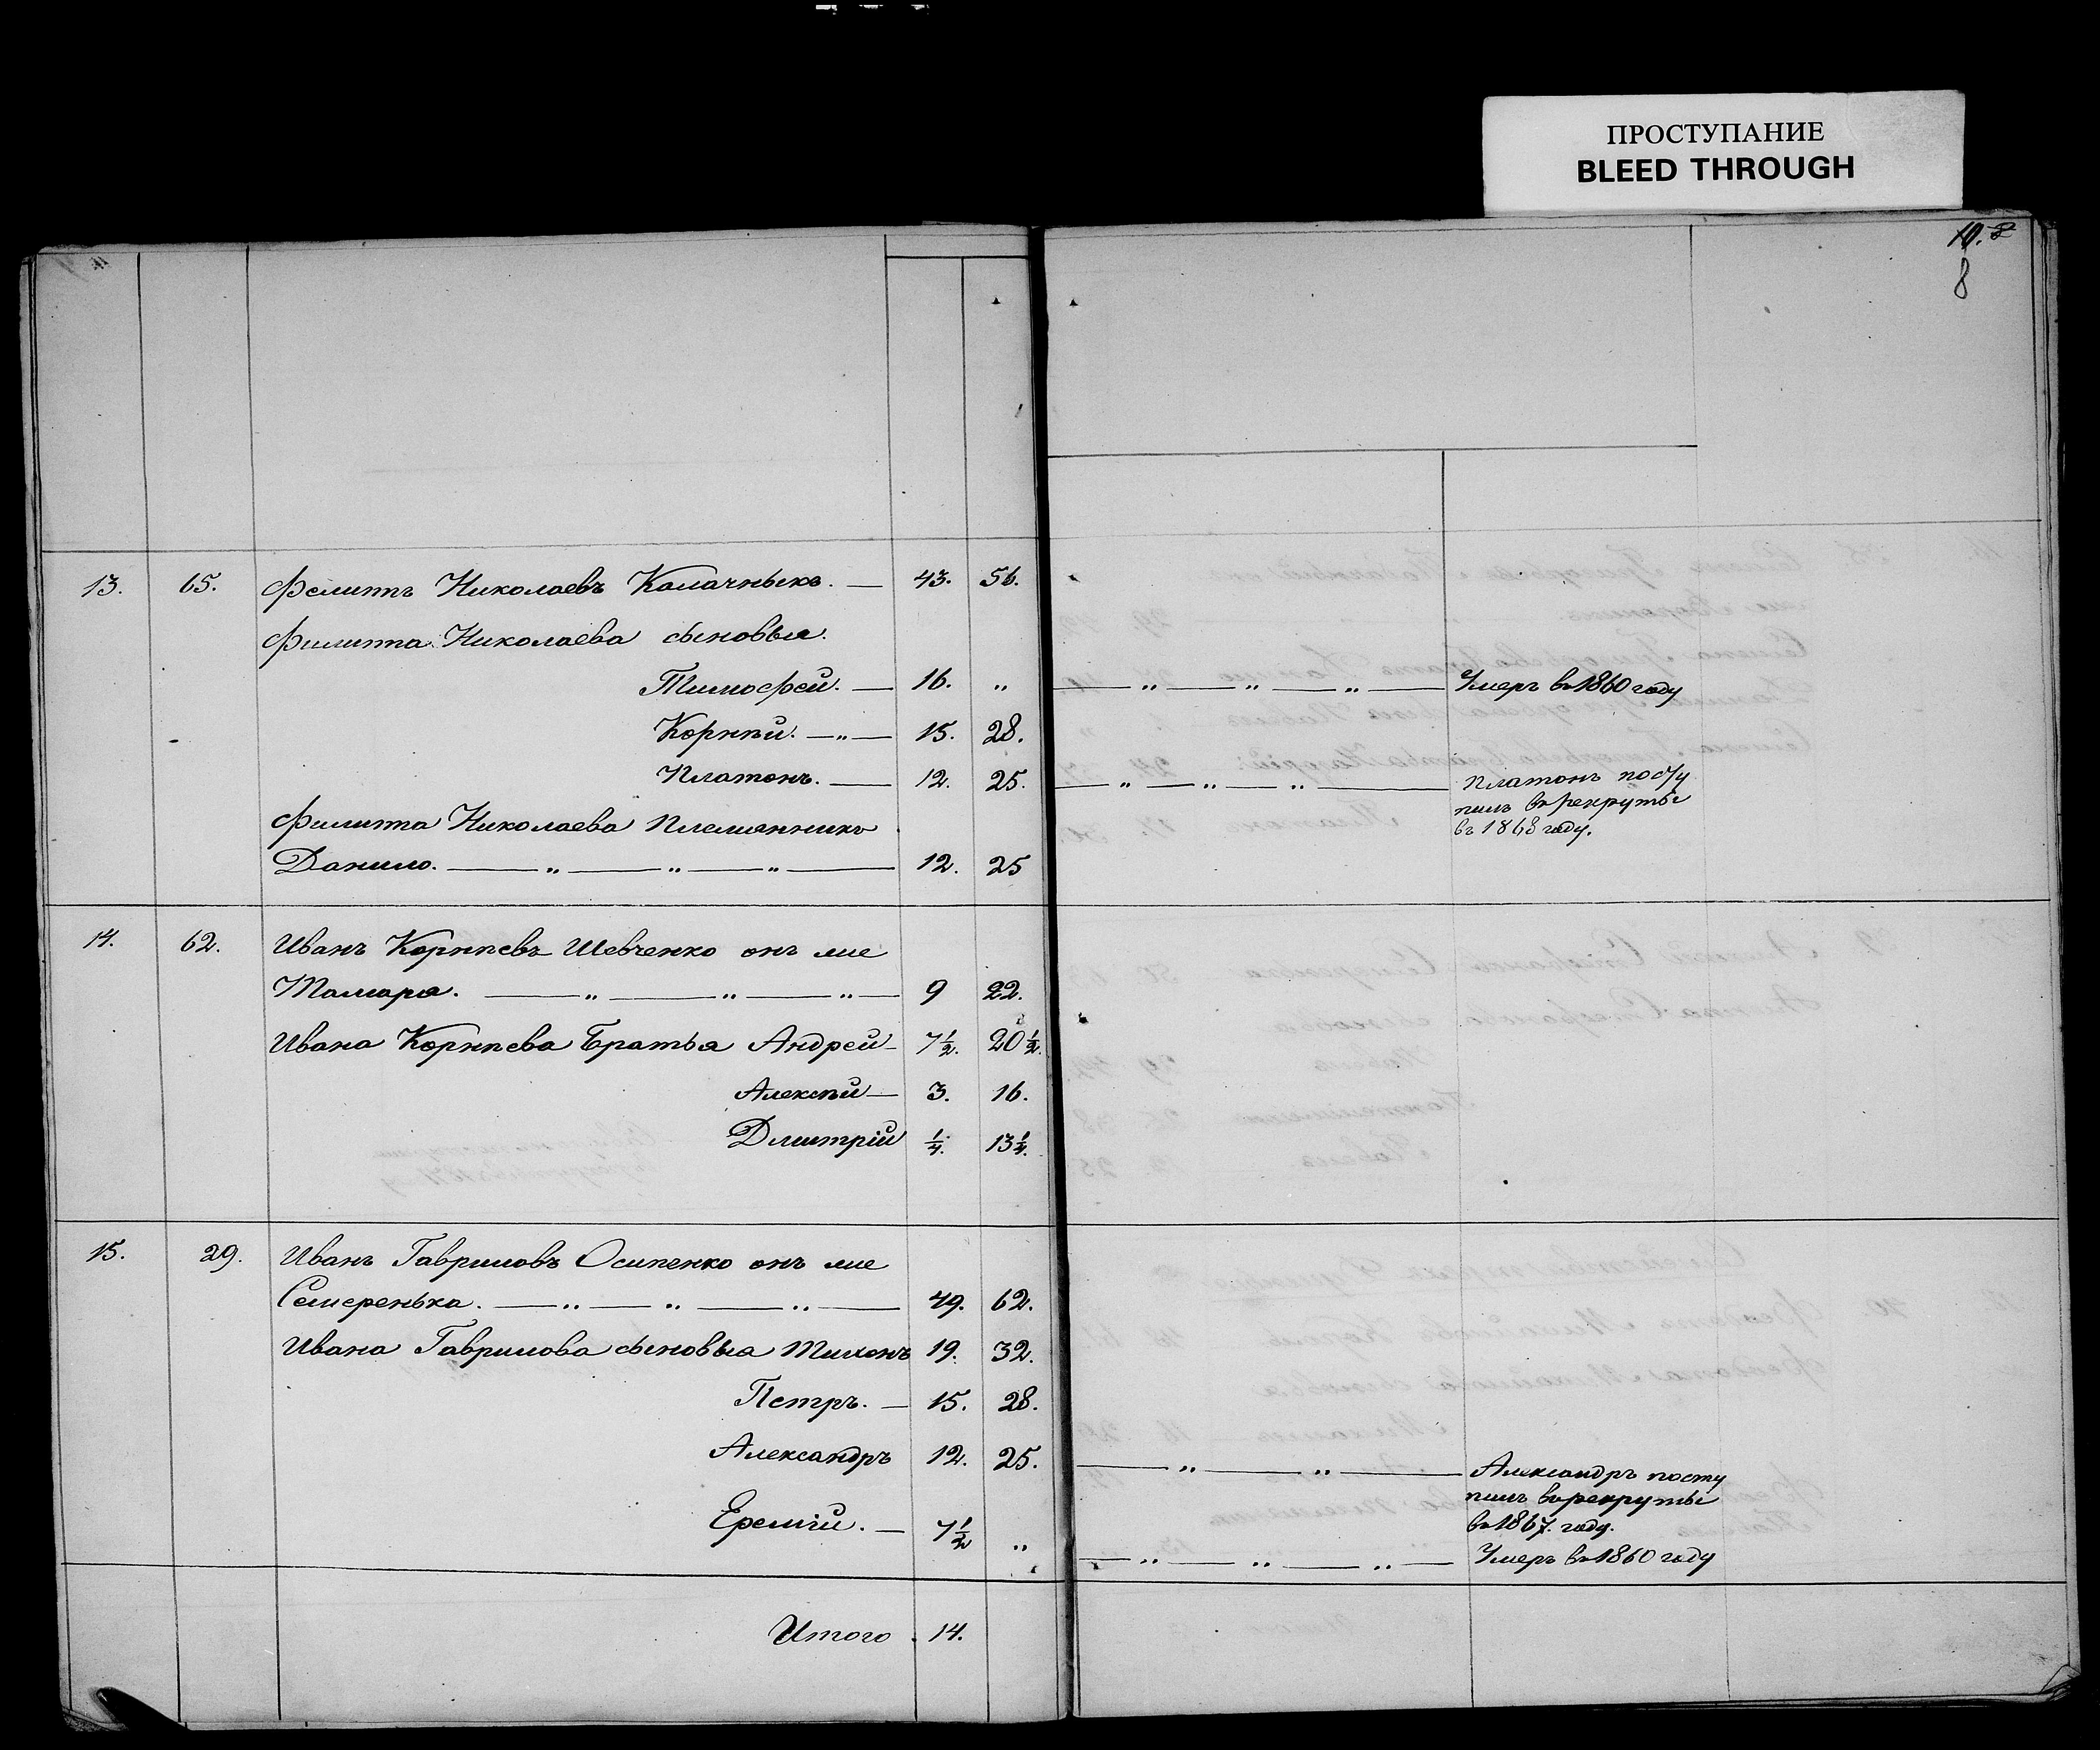 ПРОСТУПАНИЕ
BLEED THROUGH
8
13. 65. Филиппъ Николаевъ Калачныкъ. — 43. 56.
Филиппа Николаева сыновья.
Тимофей. — 16. „ — „ — „ — „ — Умеръ въ 1860 году
Корнѣй. — „ — 15. 28.
Платонъ. — 12. 25. — „ — „ — „ — Платонъ посту
пилъ въ рекруты
въ 1868 году.
Филиппа Николаева Племянникъ
Данило. — „ — „ — „ — 12. 25
14. 62. Иванъ Корнѣевъ Шевченко онъ же
Тамара. — „ — „ — „ — 9 22.
Ивана Корнѣева Братья Андрей — 7½. 20½.
Алексѣй — 3. 16.
Дмитрій ¼. 13¼.
15. 29. Иванъ Гавриловъ Осипенко онъ же
Семеренька. — „ — „ — „ — 49. 62.
Ивана Гаврилова сыновья Тихонъ 19. 32.
Петръ. — 15. 28.
Александръ 12. 25. — „ — „ — Александръ посту
пилъ въ рекруты
въ 1867. году.
Еремій. — 7½ „ — „ — „ — „ — Умеръ въ 1860 году
Итого 14.